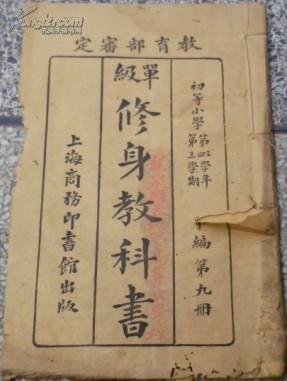 教育部審定
初等小學 第四學年 第三學期
編第九冊
單級
修身教科書
上海商務印書館出版